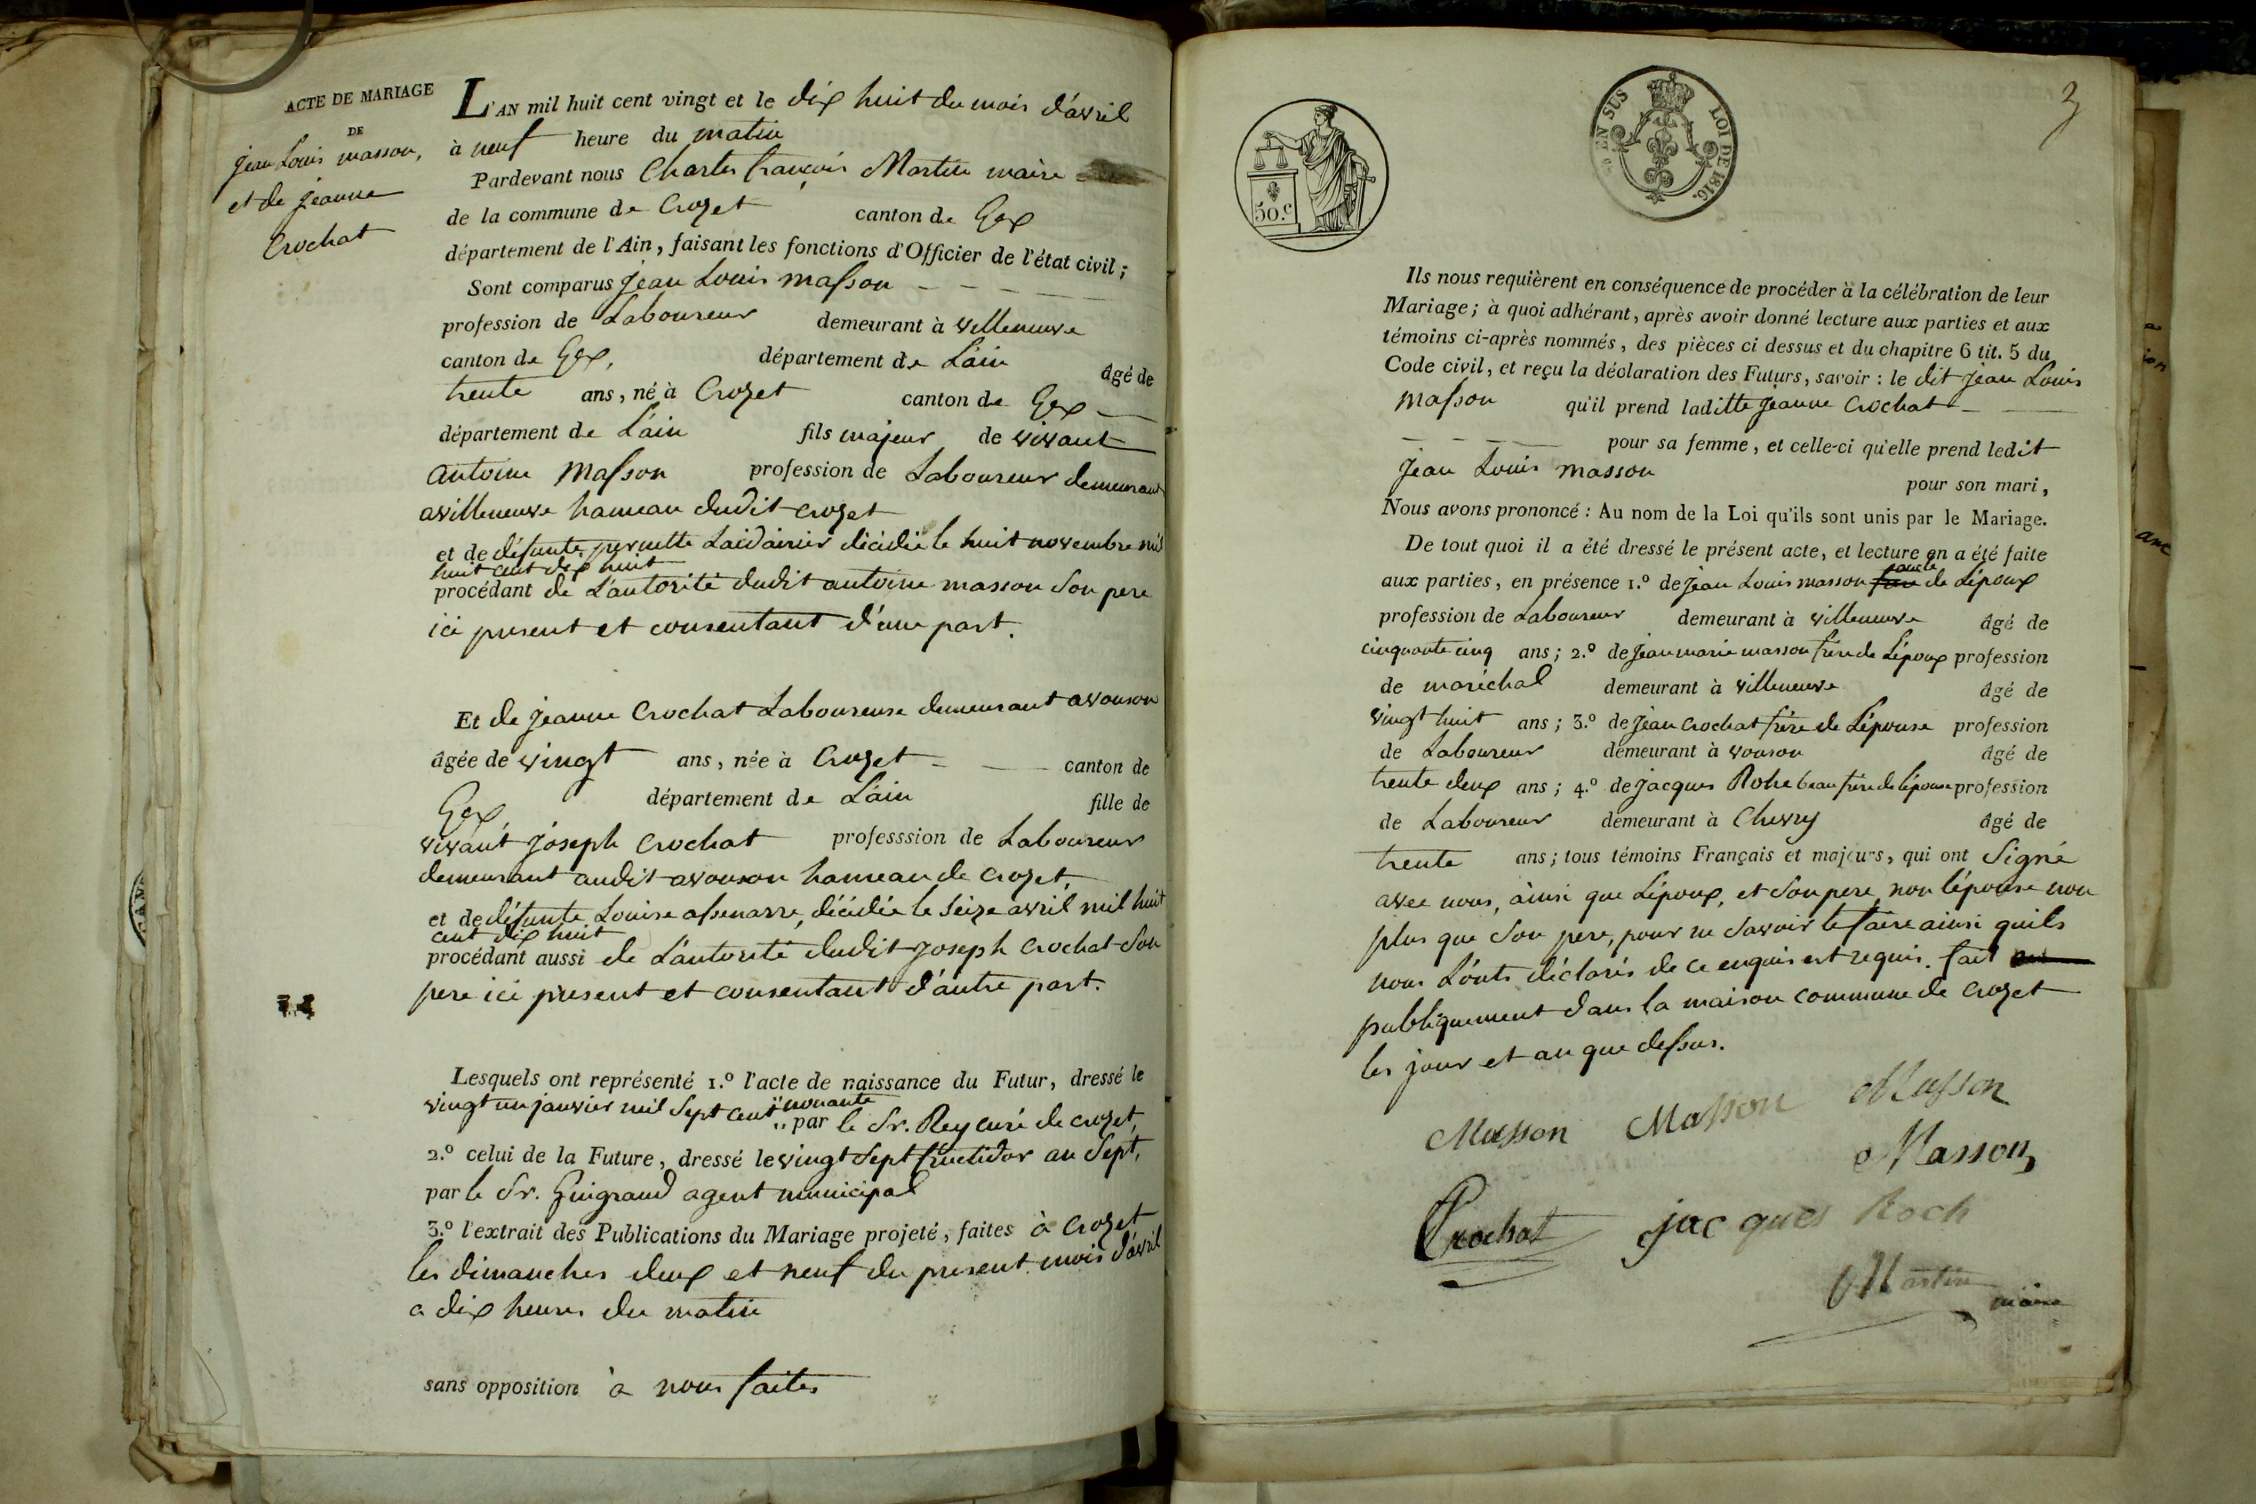 ACTE DE MARIAGE
DE
jean Louis masson,
et de jeanne
Crochat
L'AN mil huit cent vingt et le dix huit du mois d'avril
à neuf heure du matin
Pardevant nous Charles françois Martin maire
de la commune de Crozet canton de Gex
département de l'Ain, faisant les fonctions d'Officier de l'état civil;
Sont comparus jean Louis masson
profession de Laboureur demeurant à villeneuve
canton de Gex, département de L'ain âgé de
trente ans, né à Crozet canton de Gex
département de L'ain fils majeur de vivant
antoine Masson profession de Laboureur demeurant
a villeneuve hameau dudit crozet
et de défunte pernette décédée le huit novembre mil
huit cent dix huit
procédant de L'autorité dudit antoine masson Son pere
ici present et consentant d'une part.
Et de jeanne Crochat Laboureuse demeurant avouson
âgée de vingt ans, née à Crozet canton de
Gex département de L'ain fille de
vivant joseph Crochat professsion de Laboureur
demeurant audit avouson hameau de crozet,
et de défunte Louise assenarre, décédée le Seize avril mil huit
cent dix huit
procédant aussi de L'autorité dudit joseph Crochat Son
pere ici present et consentant d'autre part.
Lesquels ont représenté 1.º l'acte de naissance du Futur, dressé le
vingt un janvier mil Sept cent nonante par le Sr. Rey curé de crozet,
2.º celui de la Future, dressé le vingt Sept fructidor an Sept,
par le Sr. Guigraud agent municipal
3.º l'extrait des Publications du Mariage projeté, faites à Crozet
les dimanches deux et neuf du present mois d'avril
a dix heures du matin
sans opposition à nous faites
3
50.c
EN SUS LOI DE 1816.
Ils nous requièrent en conséquence de procéder à la célébration de leur
Mariage; à quoi adhérant, après avoir donné lecture aux parties et aux
témoins ci-après nommés, des pièces ci dessus et du chapitre 6 tit. 5 du
Code civil, et reçu la déclaration des Futurs, savoir: le dit jean Louis
Masson qu'il prend laditte jeanne Crochat
pour sa femme, et celle-ci qu'elle prend ledit
jean Louis masson pour son mari,
Nous avons prononcé: Au nom de la Loi qu'ils sont unis par le Mariage.
De tout quoi il a été dressé le présent acte, et lecture en a été faite
aux parties, en présence 1.º de jean Louis masson oncle de L'époux
profession de Laboureur demeurant à villeneuve âgé de
cinquante cinq ans; 2.º de jean marie masson frère de L'époux profession
de maréchal demeurant à villeneuve âgé de
vingt huit ans; 3.º de jean crochat frère de L'épouse profession
de Laboureur demeurant à vouson âgé de
trente deux ans; 4.º de jacques Roke beau frère de l'épouse profession
de Laboureur demeurant à Chevry âgé de
trente ans; tous témoins Français et majeurs, qui ont Signé
avec nous, ainsi que L'époux, et Son pere, non l'épouse non
plus que Son pere, pour ne Savoir le faire ainsi quils
nous L'onts déclarés de ce enquis et requis. fait
publiquement dans la maison commune de Crozet
les jour et an que dessus.
Masson Masson Masson
Masson
Crochat jacques Roch
Martin
maire